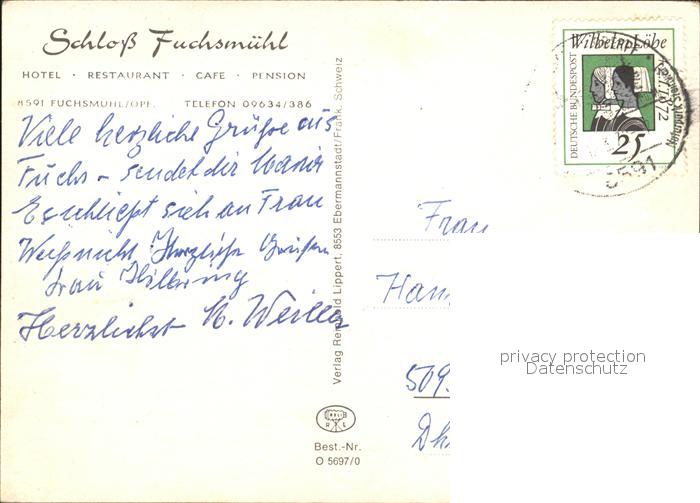 Schloß Fuchsmühl
HOTEL · RESTAURANT · CAFE · PENSION
8591 FUCHSMÜHL/OPF. TELEFON 09634/386
Viele herzliche Grüße aus
Fuchs – sendet dir Maria
Es schließt sich an Frau
Weißnicht Herzliche Grüße
Frau
Herzlichst M.
Verlag Reinhold Lippert, 8553 Ebermannstadt/Fränk. Schweiz
R L
Best.-Nr.
O 5697/0
Wilhelm Löbe
DEUTSCHE BUNDESPOST
25
8591
Frau
509
privacy protection
Datenschutz